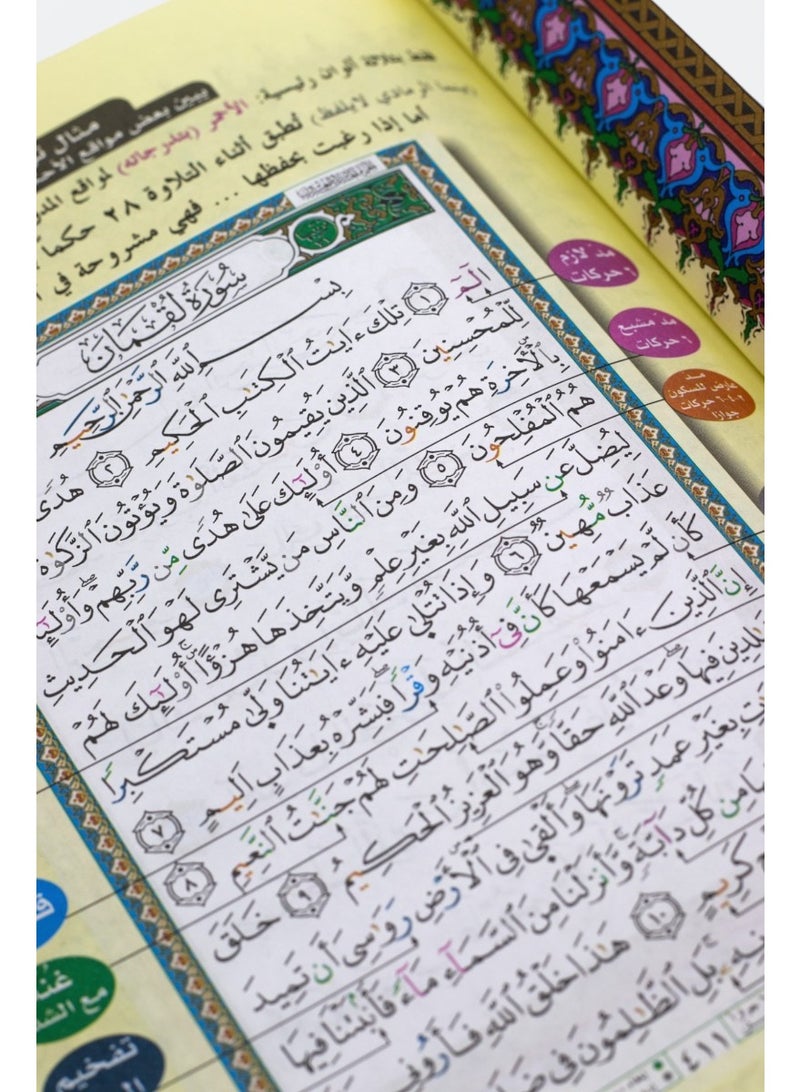 مثال
يبين بعض مواقع
فقط بثلاثة ألوان رئيسية: الأحمر (بتدرجاته) لمواقع
(بينما الرمادي لا يلفظ) تُطبق أثناء التلاوة ٢٨ حكماً
أما إذا رغبت بحفظها ... فهي مشروحة في
سُورَةُ لُقْمَانَ
بِسْمِ ٱللَّهِ ٱلرَّحْمَٰنِ ٱلرَّحِيمِ
الٓمٓ ١ تِلْكَ ءَايَٰتُ ٱلْكِتَٰبِ ٱلْحَكِيمِ ٢ هُدًى
لِّلْمُحْسِنِينَ ٣ ٱلَّذِينَ يُقِيمُونَ ٱلصَّلَوٰةَ وَيُؤْتُونَ ٱلزَّكَوٰةَ
بِٱلْأَخِرَةِ هُمْ يُوقِنُونَ ٤ أُو۟لَٰٓئِكَ عَلَىٰ هُدًى مِّن رَّبِّهِمْ وَأُو۟لَٰٓئِ
هُمُ ٱلْمُفْلِحُونَ ٥ وَمِنَ ٱلنَّاسِ مَن يَشْتَرِى لَهْوَ ٱلْحَدِيثِ
لِيُضِلَّ عَن سَبِيلِ ٱللَّهِ بِغَيْرِ عِلْمٍ وَيَتَّخِذَهَا هُزُوًا أُو۟لَٰٓئِكَ لَهُمْ
عَذَابٌ مُّهِينٌ ٦ وَإِذَا تُتْلَىٰ عَلَيْهِ ءَايَٰتُنَا وَلَّىٰ مُسْتَكْبِرًا
كَأَن لَّمْ يَسْمَعْهَا كَأَنَّ فِىٓ أُذُنَيْهِ وَقْرًا فَبَشِّرْهُ بِعَذَابٍ أَلِيمٍ ٧
إِنَّ ٱلَّذِينَ ءَامَنُوا۟ وَعَمِلُوا۟ ٱلصَّٰلِحَٰتِ لَهُمْ جَنَّٰتُ ٱلنَّعِيمِ ٨
لِدِينَ فِيهَا وَعْدَ ٱللَّهِ حَقًّا وَهُوَ ٱلْعَزِيزُ ٱلْحَكِيمُ ٩ خَلَقَ
تِ بِغَيْرِ عَمَدٍ تَرَوْنَهَا وَأَلْقَىٰ فِى ٱلْأَرْضِ رَوَٰسِىَ أَن تَمِيدَ
مِن كُلِّ دَآبَّةٍ وَأَنزَلْنَا مِنَ ٱلسَّمَآءِ مَآءً فَأَنۢبَتْنَا فِيهَا
كَرِيمٍ ١٠ هَٰذَا خَلْقُ ٱللَّهِ فَأَرُونِى
بَلِ ٱلظَّٰلِمُونَ فِى
٤١١
مد لازم
٦ حركات
مد مشبع
٦ حركات
مد
عارض للسكون
٢-٤-٦ حركات
جوازاً
مع
تفخيم